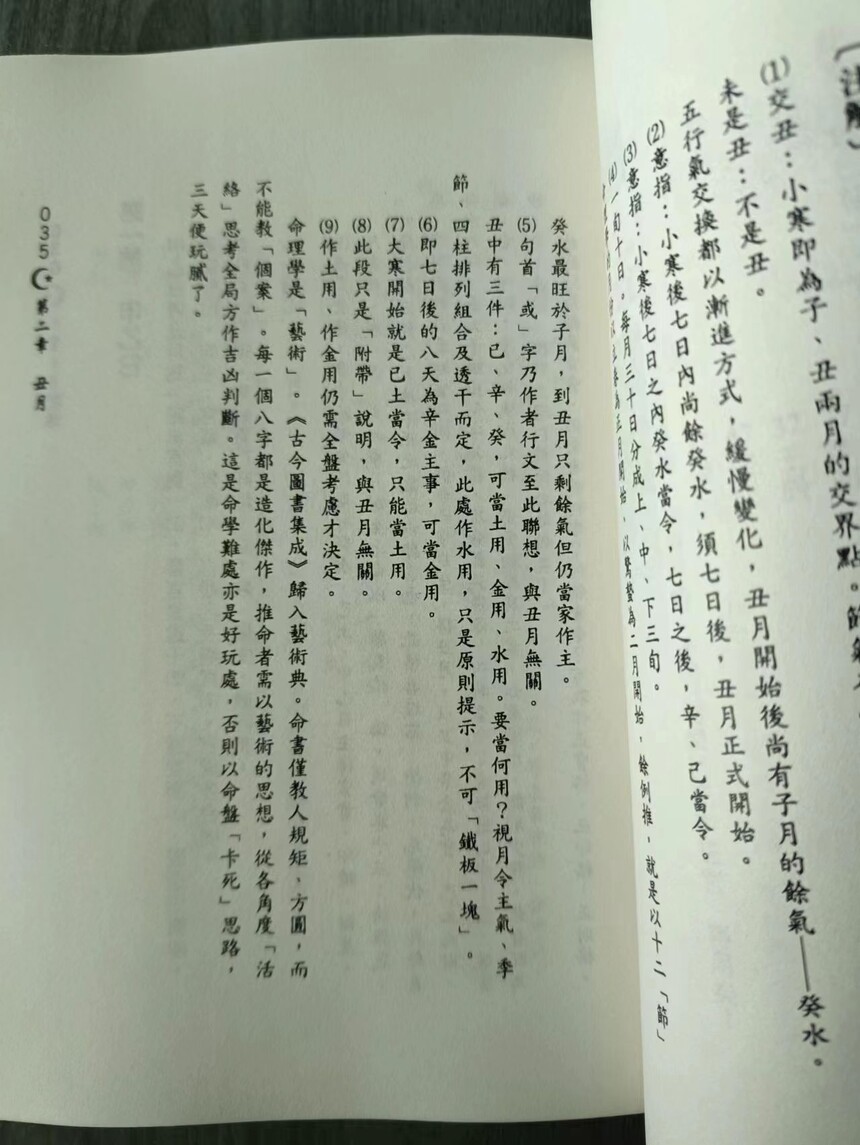 〔註解〕
(1)交丑：小寒即為子、丑兩月的交界點。節氣
未是丑：不是丑。
五行氣交換都以漸進方式，緩慢變化，丑月開始後尚有子月的餘氣——癸水。
(2)意指：小寒後七日內尚餘癸水，須七日後，丑月正式開始。
(3)意指：小寒後七日之內癸水當令，七日之後，辛、己當令。
(4)一旬十日。每月三十日分成上、中、下三旬。
為正月開始，以驚蟄為二月開始，餘例推，就是以十二「節」
癸水最旺於子月，到丑月只剩餘氣但仍當家作主。
(5)句首「或」字乃作者行文至此聯想，與丑月無關。
丑中有三件：己、辛、癸，可當土用、金用、水用。要當何用？視月令主氣、季
節、四柱排列組合及透干而定，此處作水用，只是原則提示，不可「鐵板一塊」。
(6)即七日後的八天為辛金主事，可當金用。
(7)大寒開始就是己土當令，只能當土用。
(8)此段只是「附帶」說明，與丑月無關。
(9)作土用、作金用仍需全盤考慮才決定。
命理學是「藝術」。《古今圖書集成》歸入藝術典。命書僅教人規矩、方圓，而
不能教「個案」。每一個八字都是造化傑作，推命者需以藝術的思想，從各角度「活
絡」思考全局方作吉凶判斷。這是命學難處亦是好玩處，否則以命盤「卡死」思路，
三天便玩膩了。
035 第二章 丑月